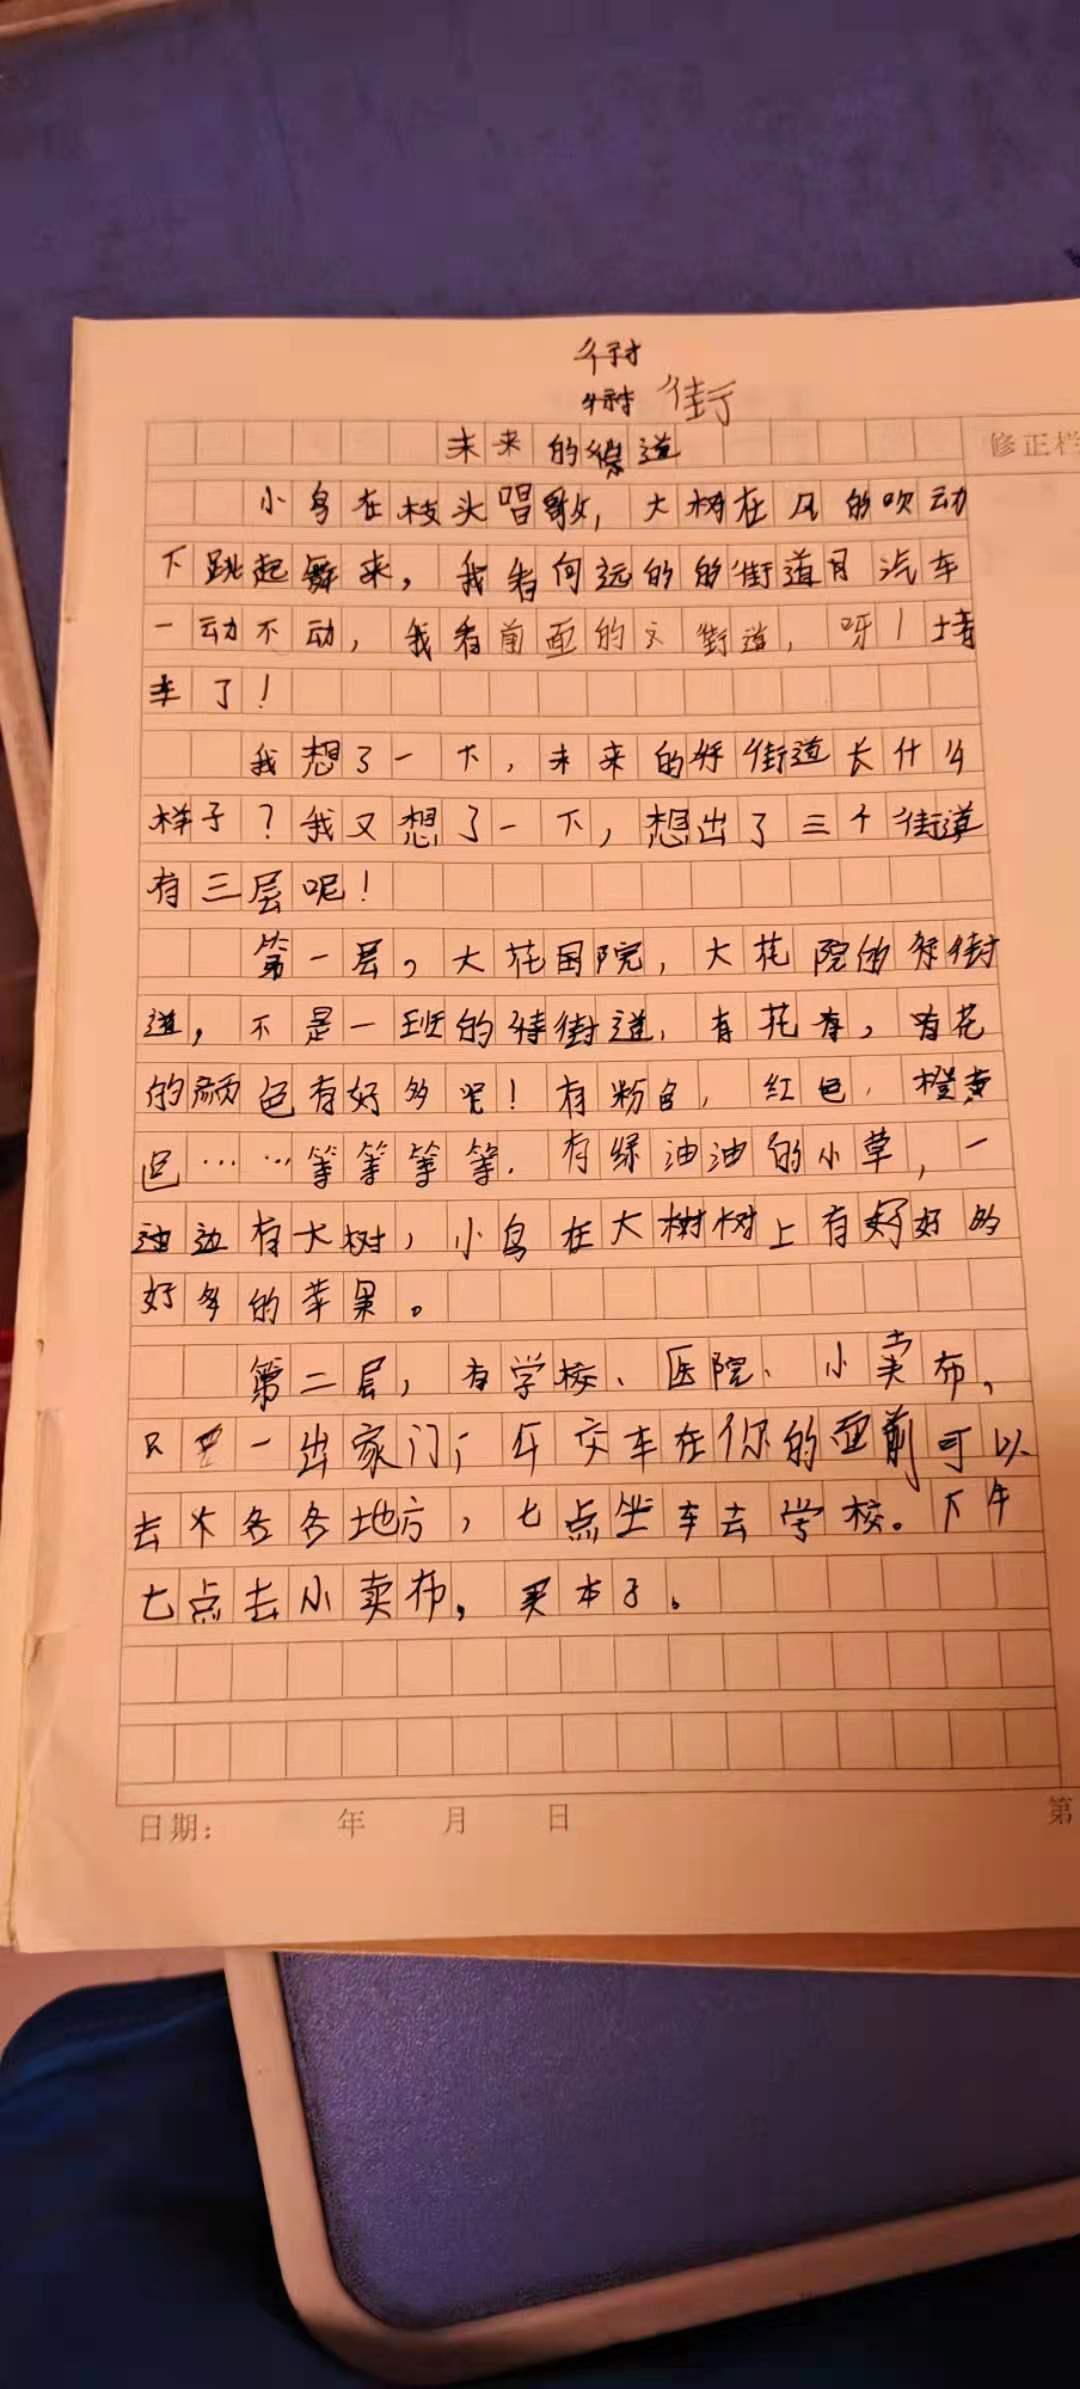 街
未来的街道
修正栏
小鸟在枝头唱歌,大树在风的吹动
下跳起舞来,我看向远的的街道 汽车
一动不动,我看前面的 街道,呀!堵
车了!
我想了一下,未来的 街道长什么
样子?我又想了一下,想出了三个街道
有三层呢!
第一层,大花园院,大花院的 街
道,不是一班的 街道,有花有,有花
的颜色有好多呢!有粉色,红色,橙黄
色……等等等等,有绿油油的小草,一
边有大树,小鸟在大树树上有好好的
好多的苹果。
第二层,有学校、医院、小卖布,
只要一出家门, 交车在你的面前可以
去 各各地方,七点坐车去学校。下午
七点去小卖布,买本子。
日期: 年 月 日
第